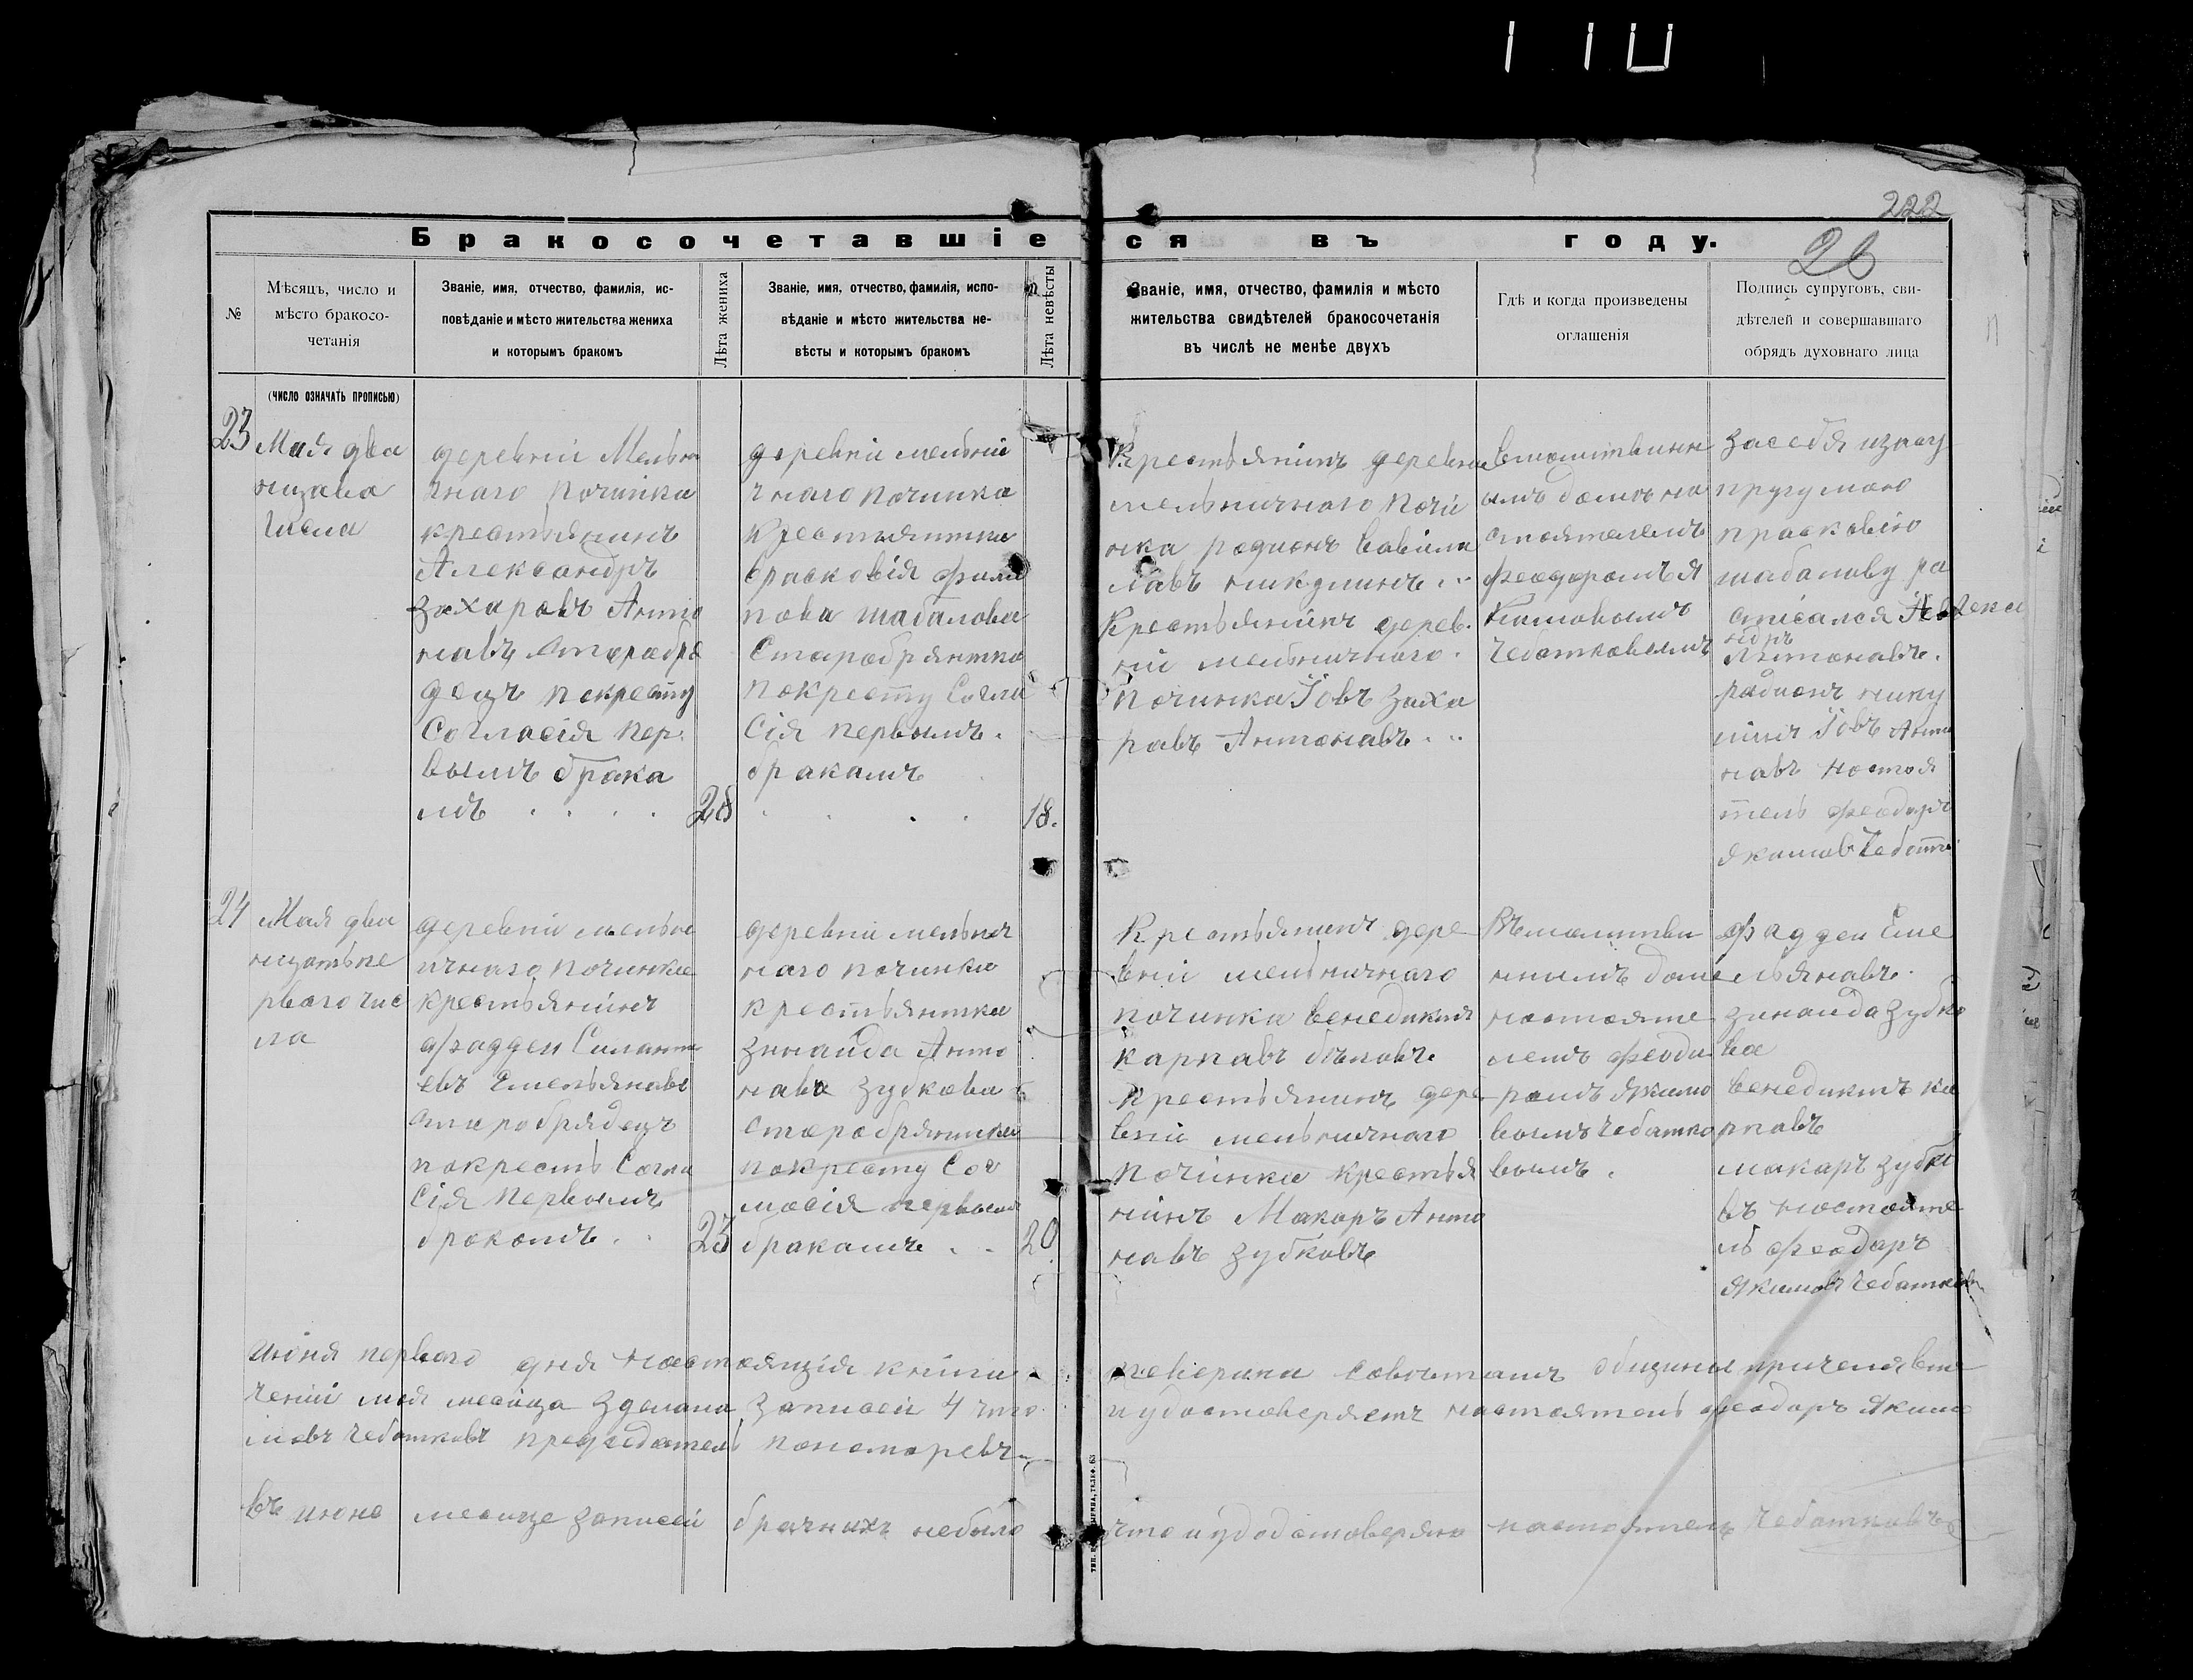 222
26
Бракосочетавшіеся въ году.
№
Мѣсяцъ, число и
мѣсто бракосо-
четанія
Званіе, имя, отчество, фамилія, ис-
повѣданіе и мѣсто жительства жениха
и которымъ бракомъ
Лѣта жениха
Званіе, имя, отчество, фамилія, испо-
вѣданіе и мѣсто жительства не-
вѣсты и которымъ бракомъ
Лѣта невѣсты
Званіе, имя, отчество, фамилія и мѣсто
жительства свидѣтелей бракосочетанія
въ числѣ не менѣе двухъ
Гдѣ и когда произведены
оглашенія
Подпись супруговъ, сви-
дѣтелей и совершавшаго
обрядъ духовнаго лица
(число означать прописью)
23
Мая два
чис­ла
деревніи Мельни
чнаго Починка
крестьянинъ
Александръ
Захаровъ Анто
навъ старабря
децъ покресту
Согласія пер.
вымъ брака
мъ . . . .
28
деревніи мельни
чнаго починка
Крестьянтка
Прасковія фили
пова шабалова
Старабрянтка
покресту Согла
сія первымъ.
бракамъ
18.
Крестьянинъ деревни
мельничнаго Почи
нка родионъ вавила
лавъ никулинъ . .
Крестьянинъ дерев.
ніи мельничнаго.
Починка Іовъ Заха
равъ Антонавъ . .
вмолитвинн
омъ домъ на
стоятелемъ
феодоромъ я
кимовымъ
Чебатковымъ
засебя изасу
пругу мою
прасковію
шабалову ра
списался Алекса
ндръ
Антонавъ.
радионъ нику
линъ Іовъ Анто
навъ Настоя
тель феодоръ
якимовъ Чебатко
24
Мая два
нцатьпе
рваго чис
ла
деревніи мельни
ичнаго починка
крестьянинъ
фаддеи Силанте
евъ Емельянавъ
старобрядецъ
покресть Согла
сія Первымъ
бракомъ . .
23
деревніи мельнич
наго починка
крестьянтка
зинаида Анто
нава Зубкова
старабрянтка
покресту Сог
ласія первым
бракамъ . .
20
Крестьянинъ дере
вніи мельничнаго
починка венедиктъ
карпавъ бѣловъ
Крестьянинъ дере
вніи мельничнаго
Починка крестья
нинъ Макаръ Анто
навъ Зубковъ
Въмолитви
ннымъ доме
настояте
лемъ феода
ромъ Якимо
вымъ Чебатко
вымъ .
фаддеи Еме
льянавъ.
зинаида зубко
ва
венедиктъ ка
рпавъ
макаръ зубко
въ настояте
ль феодаръ
Якимовъ Чебатков
июня перваго дня Настоящія книга проверина Совѣтамъ общины причемъ втѣ
ченіи мая месяца зделана записей 4 что и удостоверяетъ настоятель феодаръ Якимо
мовъ Чебатковъ председатель Понамаревъ
въ июне месице записей брачныхъ небыло что и удодстоверяю настоятель Чебатковъ